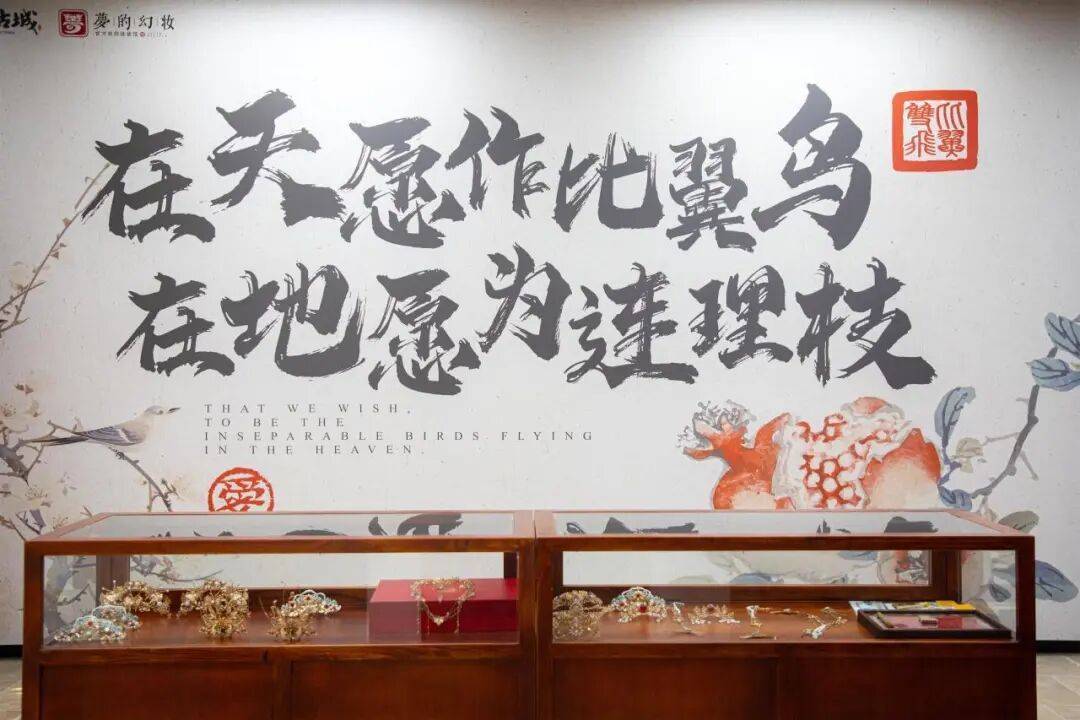 古城
夢的幻妆
在天愿作比翼鸟
比翼
雙飛
在地愿为連理枝
THAT WE WISH,
TO BE THE
INSEPARABLE BIRDS FLYING
IN THE HEAVEN.
愛